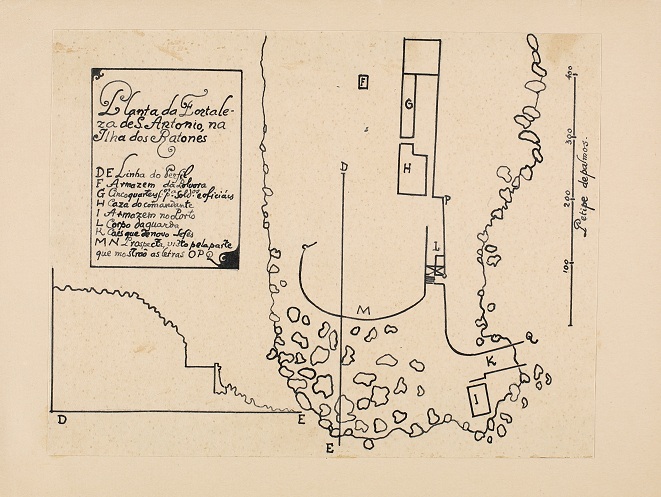 Planta da Fortale-
za de S. Antonio, na
Ilha dos Ratones
D E Linha do Perfil
F Armazem da Polvora
G Cinco quarteis pª. Soldos. e oficiáis
H Caza do comandante
I Armozem no Porto
L Corpo da guarda
K Caés que de novo se fés
M N Prospecto, visto pela parte
que mostrão as letras O P Q
F
G
H
D
P
L
M
Q
K
I
E
D
E
400
300
200
100
Petipe de palmos.